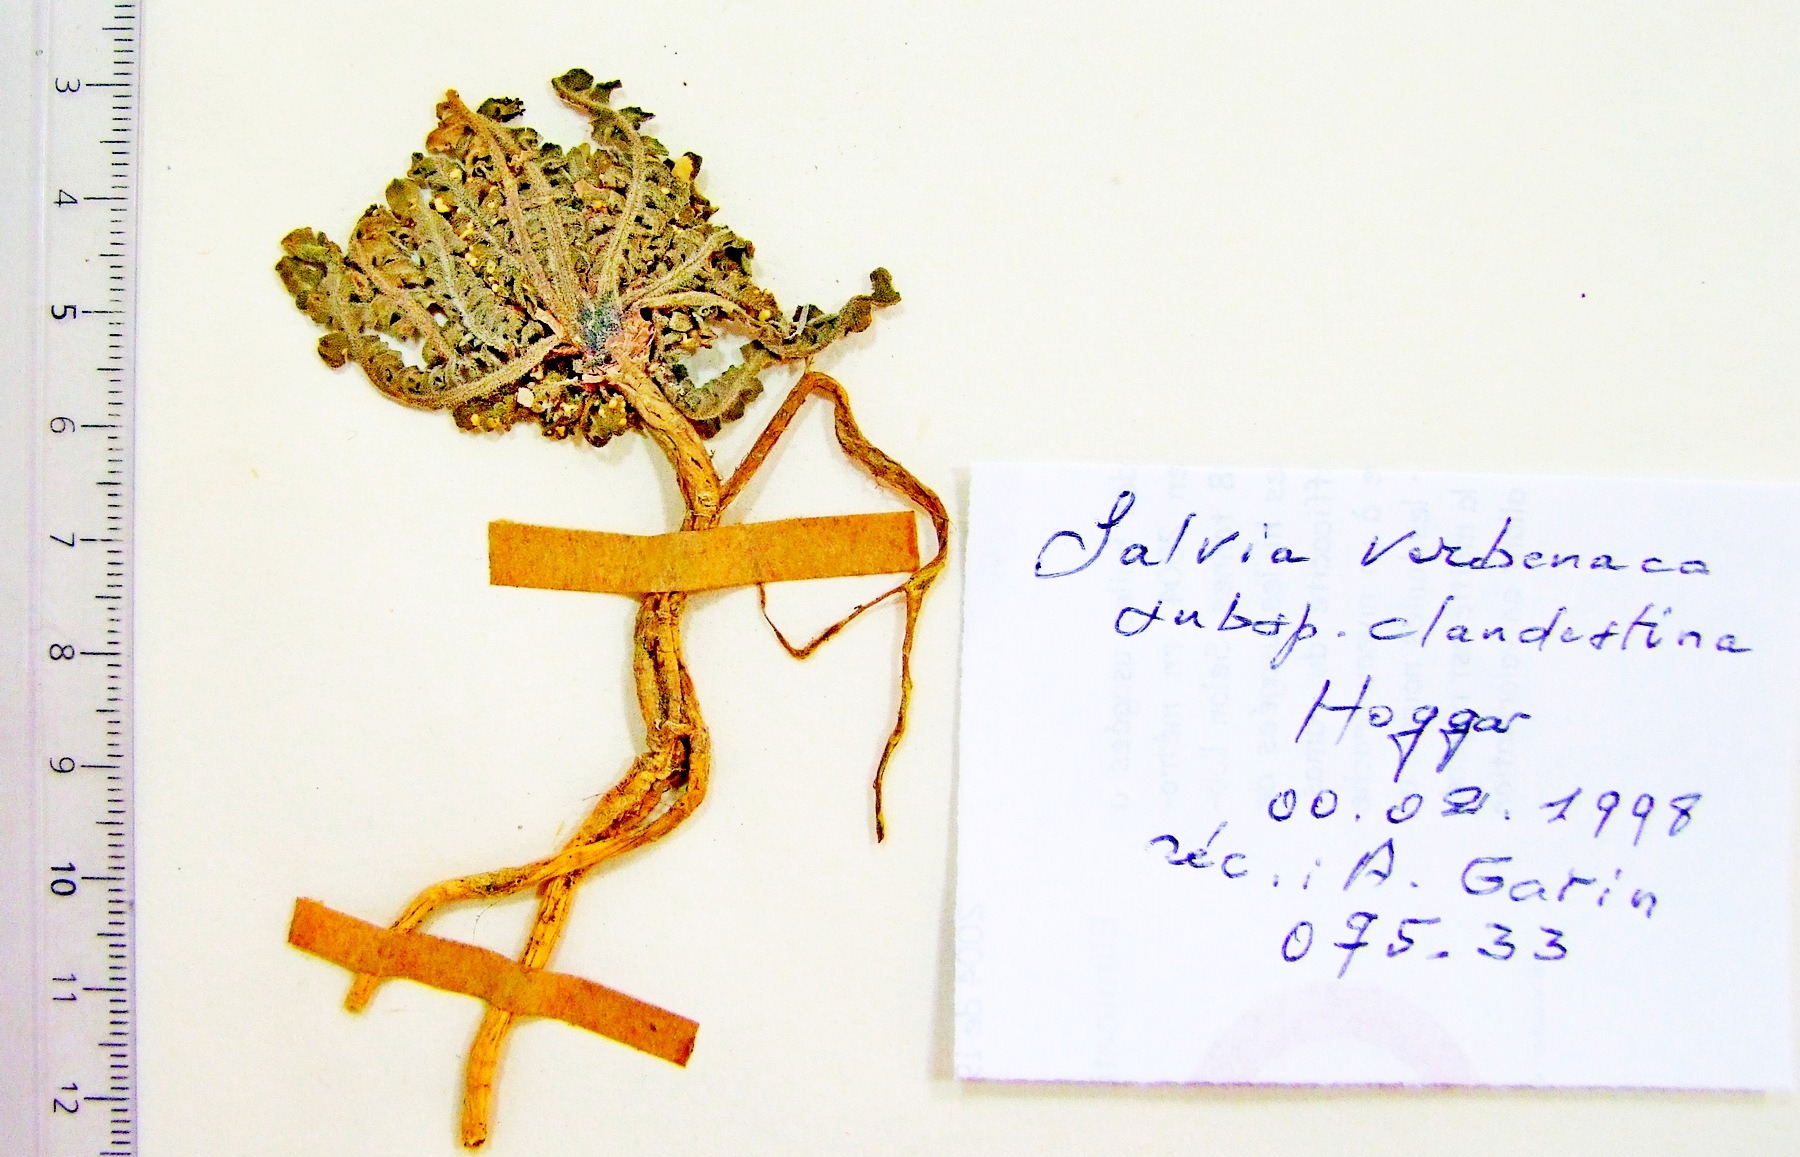 3
4
5
6
7
8
9
10
11
12
Salvia verbenaca
subsp. clandestina
Hoggar
00.02.1998
réc.: A. Garin
075.33